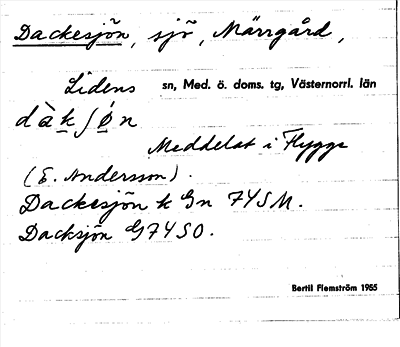 Dackesjön, sjö, Märrgård,
Lidens sn, Med. ö. doms. tg, Västernorrl. län
dàkʃø̀n
Meddelat i Flygge
(E. Andersson).
Dackesjön k Gn 74SM.
Dacksjön G74SO.
Bertil Flemström 1965